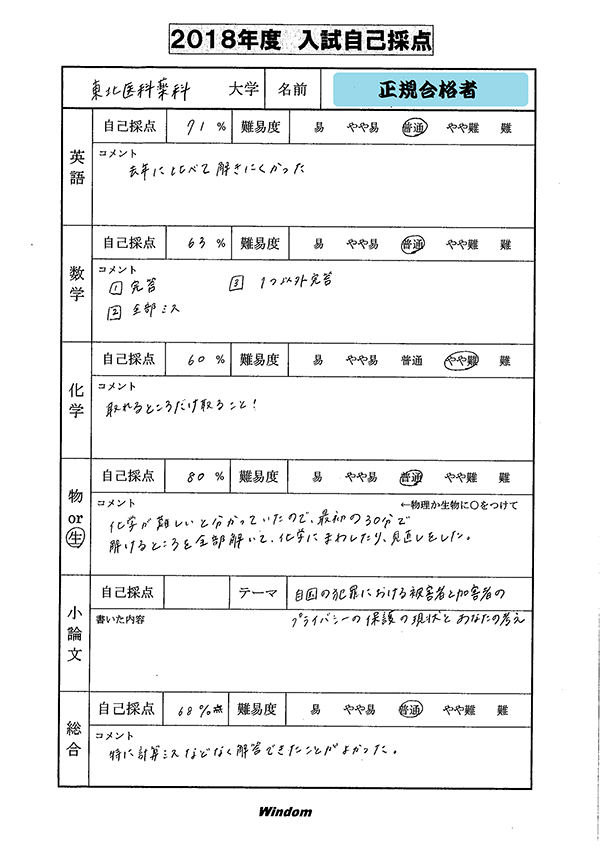 2018年度 入試自己採点
東北医科薬科 大学 名前 正規合格者
英語
自己採点 71 % 難易度 易 やや易 普通 やや難 難
コメント
去年に比べて解きにくかった
数学
自己採点 63 % 難易度 易 やや易 普通 やや難 難
コメント
1 完答 3 1つ以外完答
2 全部ミス
化学
自己採点 60 % 難易度 易 やや易 普通 やや難 難
コメント
取れるところだけ取ること!
物or生
自己採点 80 % 難易度 易 やや易 普通 やや難 難
コメント ←物理か生物に○をつけて
化学が難しいと分かっていたので、最初の30分で
解けるところを全部解いて、化学にまわしたり、見直しをした。
小論文
自己採点 テーマ 自国の犯罪における被害者と加害者の
書いた内容 プライバシーの保護の現状とあなたの考え
総合
自己採点 68%点 難易度 易 やや易 普通 やや難 難
コメント
特に計算ミスなどなく解答できたことがよかった。
Windom